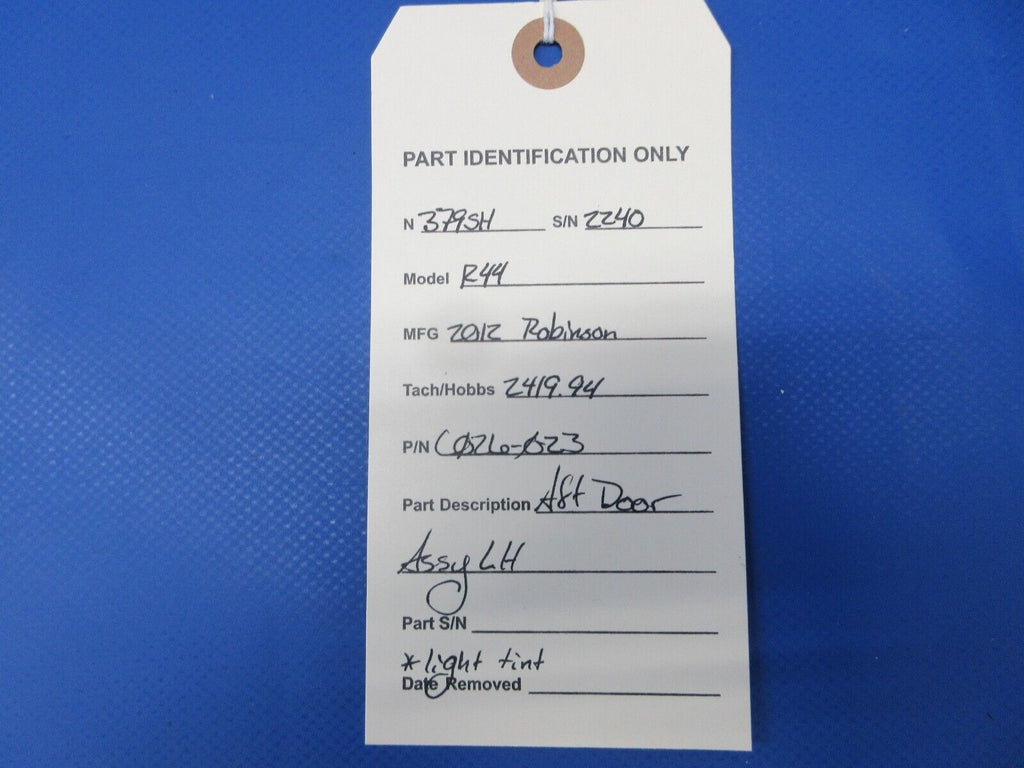 PART IDENTIFICATION ONLY
N 379SH S/N 2240
Model R44
MFG 2012 Robinson
Tach/Hobbs 2419.94
P/N C026-023
Part Description Aft Door
Assy LH
Part S/N
*light tint
Date Removed